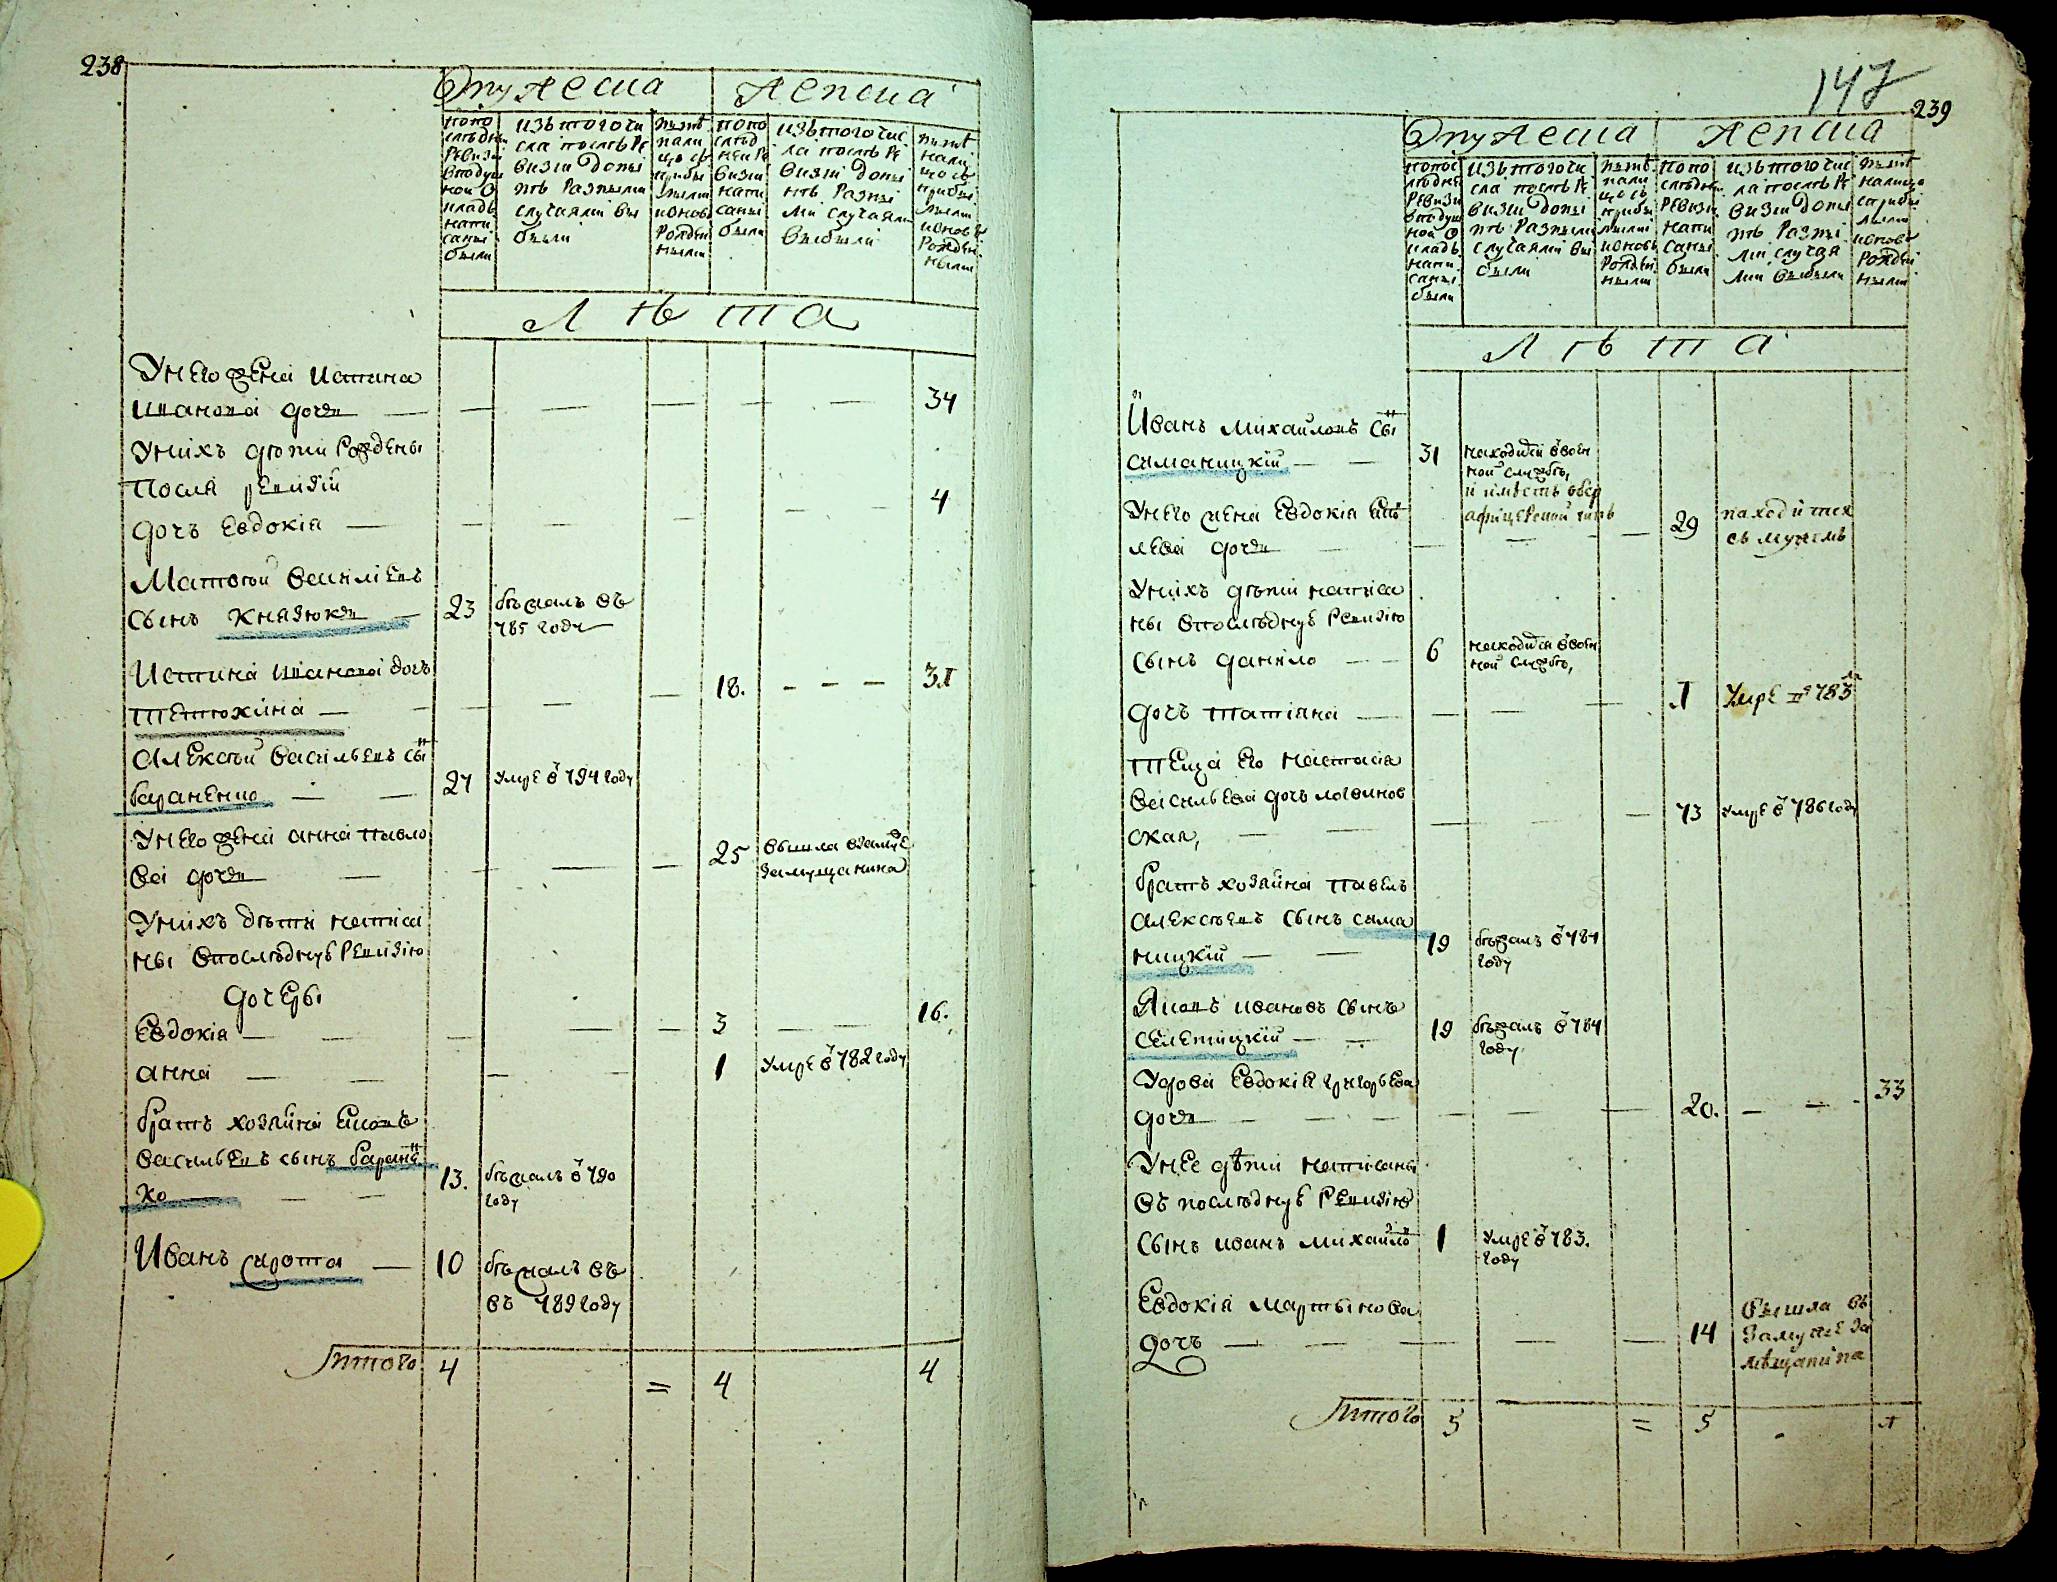 238
Мужеска
Женска
попо
следней
ревизи
вподуш
ной о
кладъ
напи
саны
были
изъ того чи
сла послѣ ре
визiи до ны
нѣ разными
случаями вы
были
нынѣ
нали
цо съ
прибы
лыми
ионовь
рожден
ными
попо
след
ней ре
визи
напи
саны
были
изъ того чис
ла послѣ ре
визiи до ны
нѣ разны
ми случаями
выбыли
нынѣ
нали
цо съ
прибы
лыми
ионовь
рожден
ными
Лѣта
У него жена Истина
Иванова дочь 34
У нихъ дѣти рождены
после ревизiи
дочь Евдокiя 4
Матвей Василiевъ
сынъ Князюкъ 23 бежалъ въ
785 году
Истина Иванова дочь 18. 31
Тетюхина
Алексѣй Васильевъ сынъ
Бараненко 27 умре в 794 году
У него жена Анна Павло
ва дочь 25 вышла взамуже
за мущанина
У нихъ дѣти написа
ны впослѣднуь ревизiю
дочеры
Евдокiя 3 16.
Анна 1 умре в 782 году
братъ хозяина Яковъ
Васильевъ сынъ Баранен
ко 13. бежалъ в 790
году
Иванъ Сирота 10 бежалъ въ
въ 789 году
Итого 4 = 4 4
147
239
Мужеска
Женска
попос
лѣдне
ревизи
вподуш
ной о
кладъ
напи
саны
были
изъ того чи
сла послѣ ре
визiи до ны
нѣ разными
случаями вы
были
нынѣ
нали
цо съ
прибы
лыми
ионовь
рожден
ными
попо
слѣдне
ревизи
напи
саны
были
изъ того чис
ла послѣ ре
визiи до ны
нѣ разны
ми случая
ми выбыли
нынѣ
налицо
сприбы
лыми
ионовь
рожден
ными
Лѣта
Иванъ Михайловъ сынъ
Симаницкiй 31 находитси ввоен
ной службѣ,
и имѣетъ обер
афицерской чинъ
У него жена Евдокiя
лева дочь 29 находится
съ мужемъ
У нихъ дѣти написа
ны впослѣднуь ревизiю
сынъ Данило 6 находитси ввоен
ной службѣ,
дочь Татiяна 1 умре 783
теща его Настасiя
Васильева дочь Логинов
ская, 73 умре в 786 году
братъ хозяина Павелъ
Алексѣевъ сынъ Сима
ницкiй 19 бежалъ в 784
году
Яковъ Ивановъ сынъ
Селетицкiй 19 бежалъ в 784
году
Удова Евдокiя Григорьева
дочь 20. 33
У нее дѣти написаны
въ послѣднуь ревизiю
сынъ Иванъ Михайловъ 1 умре в 783.
году
Евдокiя Мартынова
дочь 14 вышла въ
замуже за
мѣщанина
Итого 5 = 5 1